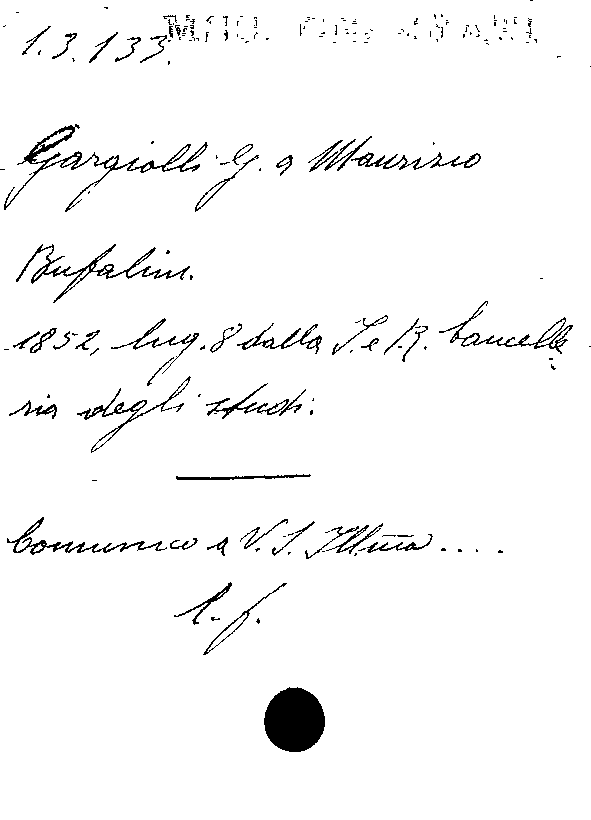 1.3.133.
Gargiolli G. a Maurizio
Bufalini.
1852, lug. 8 dalla I. e R. Cancelle
ria degli studi.
Comunico a V. S. Illma ....
l. f.